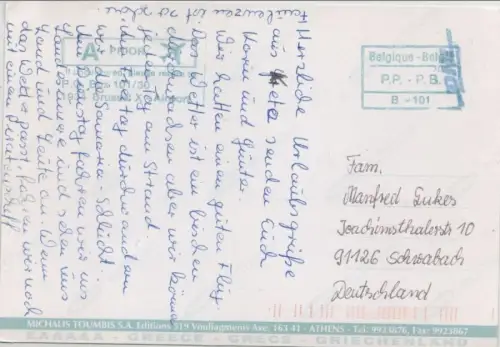 * Herzliche Urlaubsgrüße
aus Kreta senden Euch
Karin und Günter.
Wir hatten einen guten Flug.
Das Wetter ist ein bischen
durchwachsen aber wir können
jeden Tag am Strand
durchwandern
wir die Samaria-Schlucht.
fahren wir ins
und sehen uns
Land und Leute an. Wenn
das Wetter passt, haben wir noch
mit einem
ist so
A PRIOR
Belgique - België
P.P. - P.B.
B - 101
Fam.
Manfred Lukes
Joachimsthalerstr 10
91126 Schwabach
Deutschland
MICHALIS TOUMBIS S.A. Editions 519 Vouliagmenis Ave. 163 41 - ATHENS - Tel. 9923876, Fax: 9923867
ΕΛΛΑΔΑ - GREECE - GRECE - GRIECHENLAND